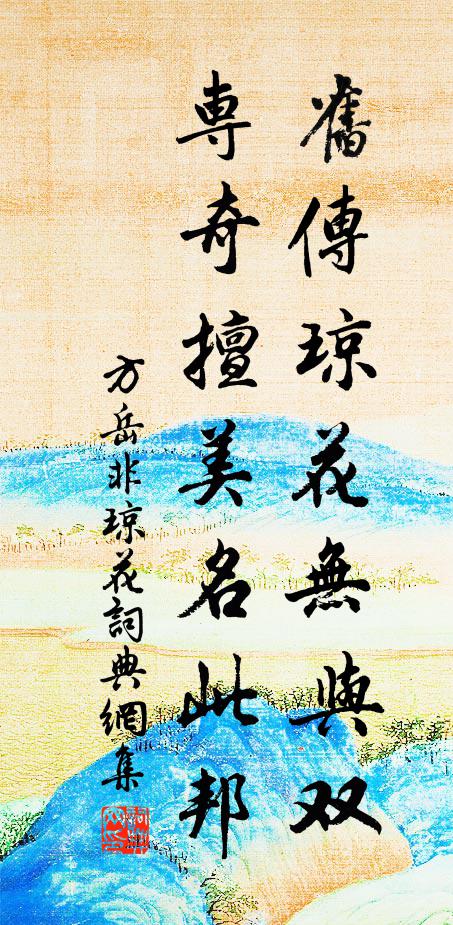 舊傳琼花無與双
専奇擅美名此邦
方岳非琼花詞典網集